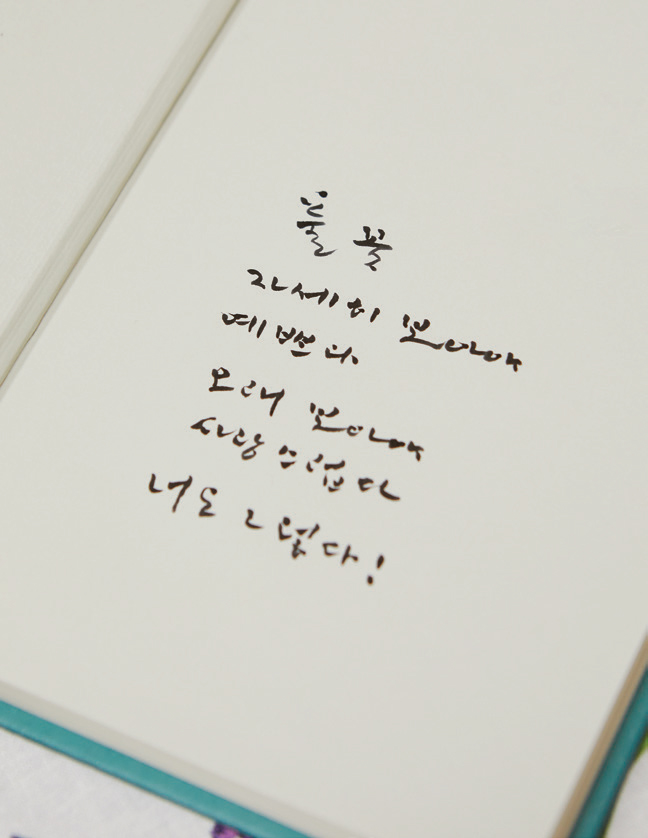 풀꽃
자세히 보아야
예쁘다
오래 보아야
사랑스럽다
너도 그렇다!